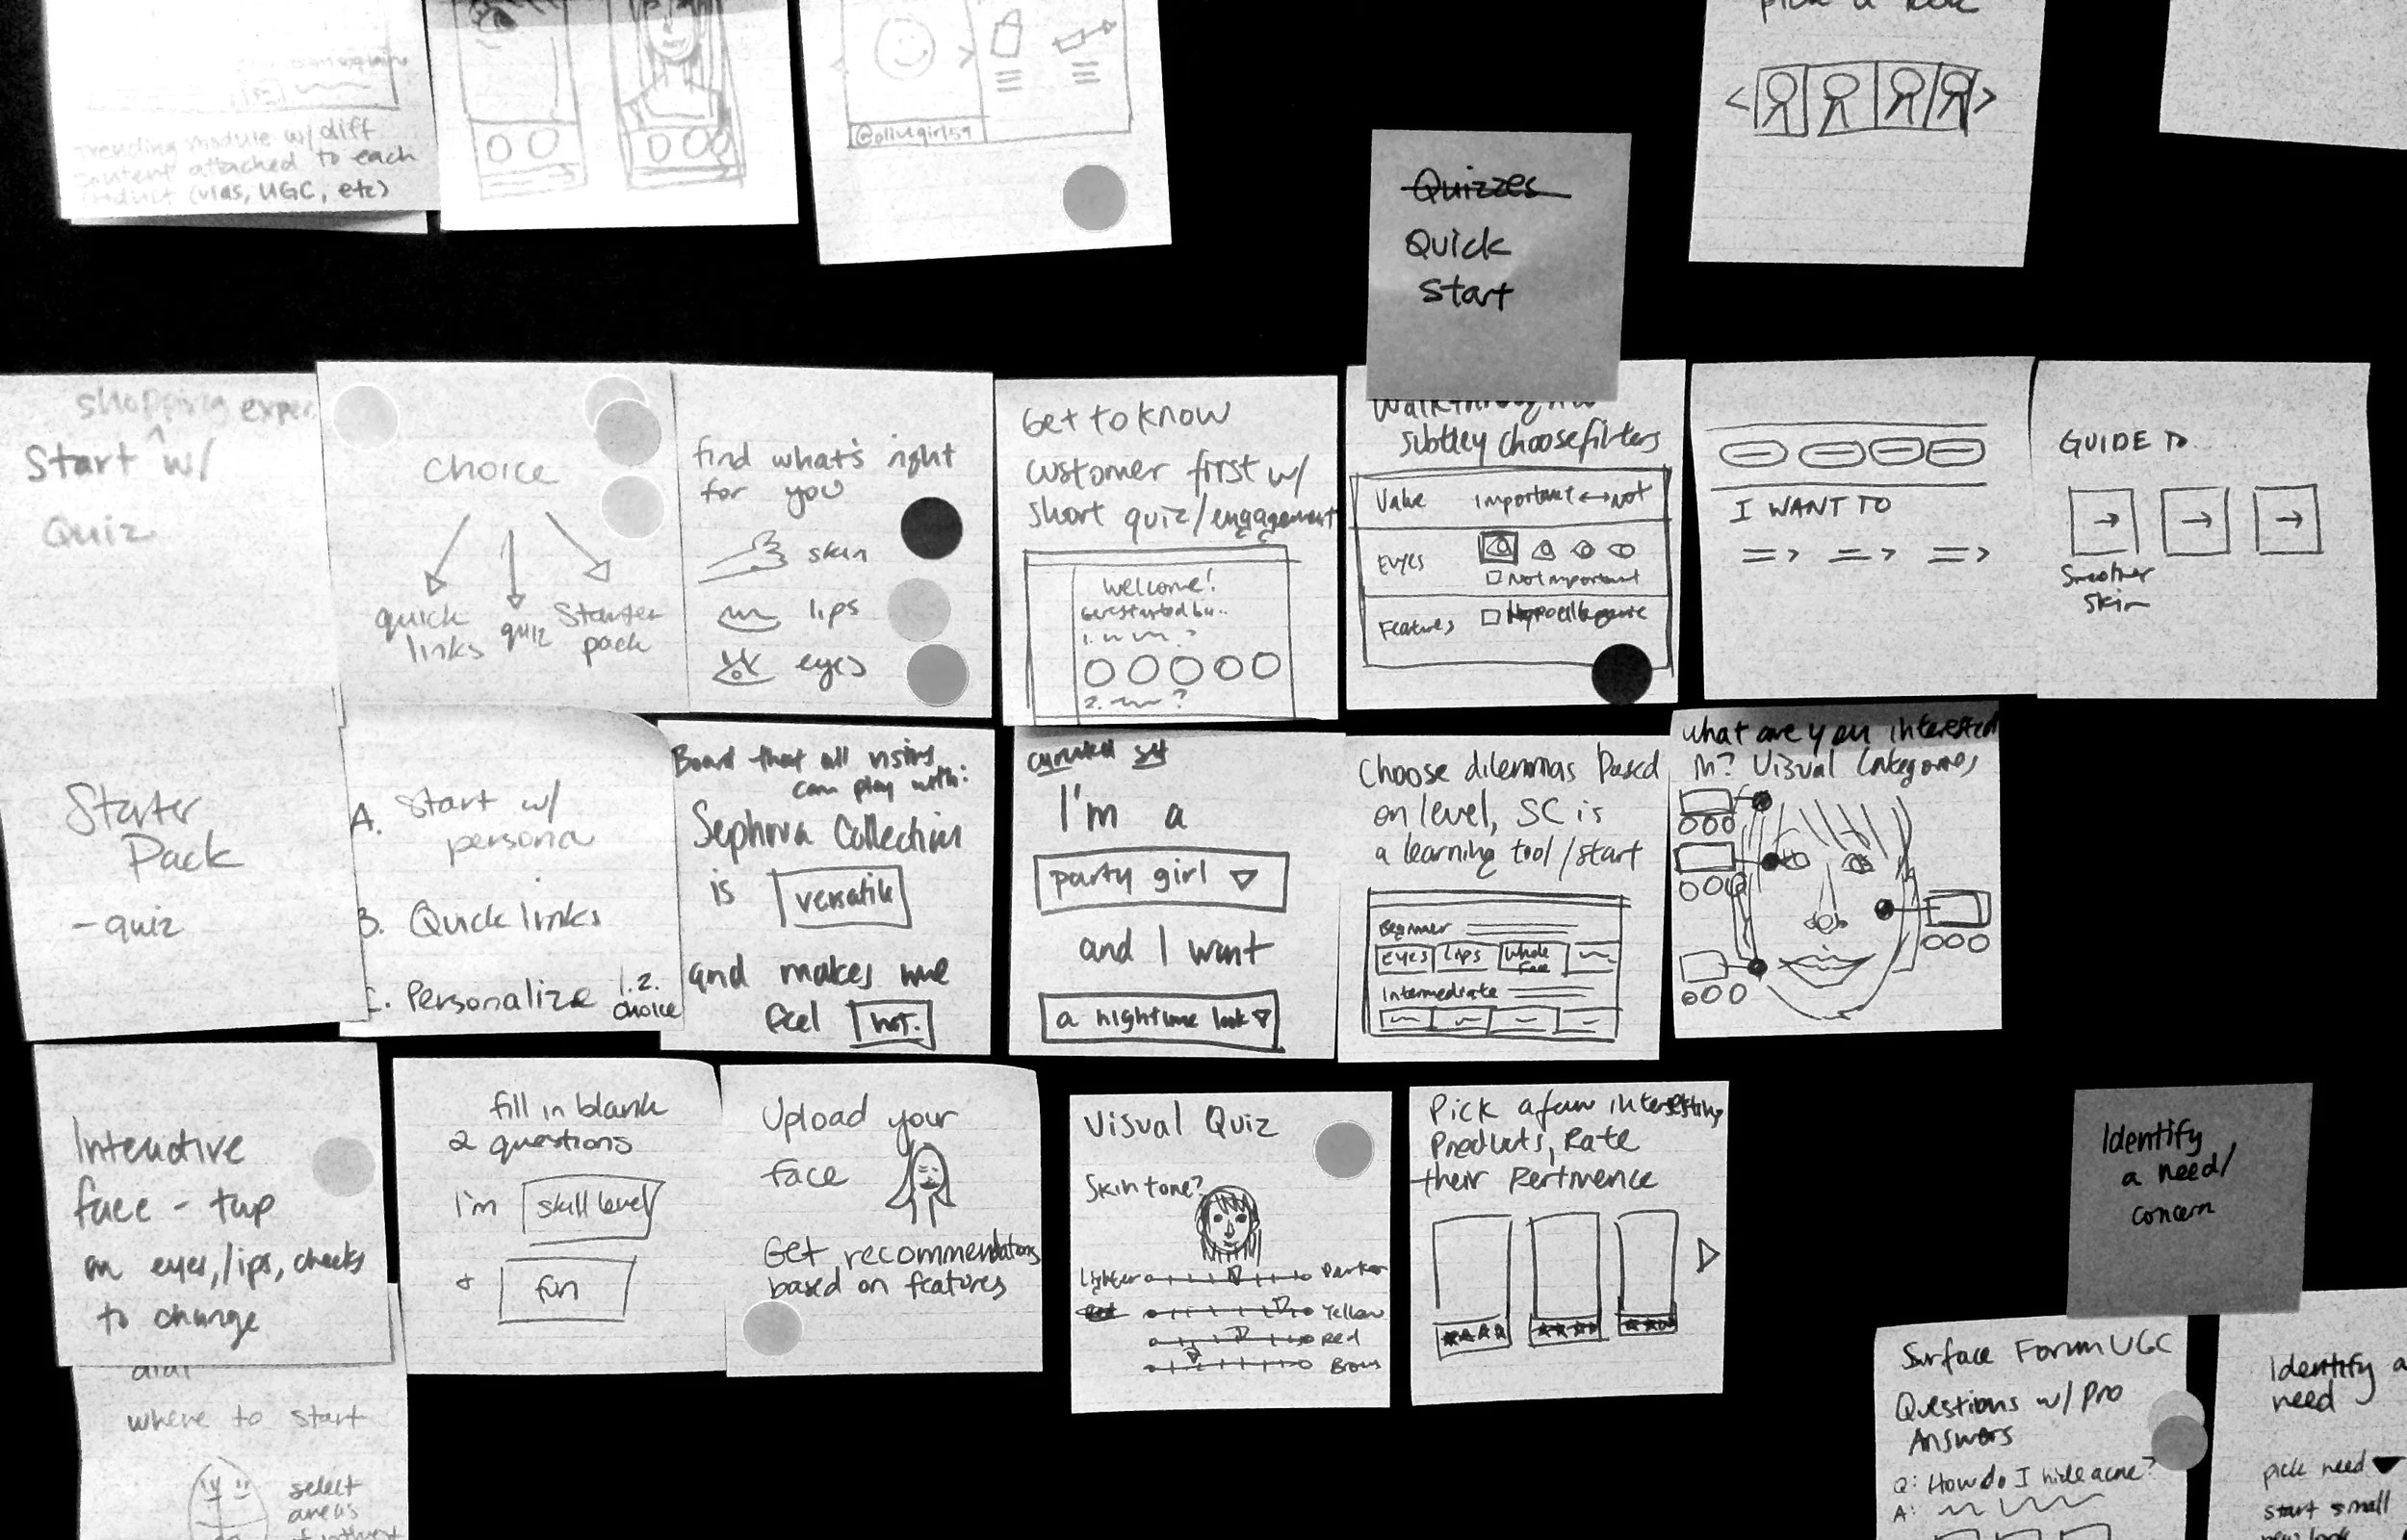 Trending module w/ diff
content attached to each
product (vids, UGC, etc)
@olivegirl59
pick a look
Quizzes
Quick
Start
shopping exper
Start w/
Quiz
choice
quick
links
quiz
Starter
pack
find what's right
for you
skin
lips
eyes
Get to know
customer first w/
short quiz/engagement
Welcome!
Get started by..
1.
?
2.
?
Walkthrough
subtley choose filters
Value
Important ↔ Not
Eyes
Not important
Features
Hypoallergenic
I WANT TO
GUIDE TO
Smoother
skin
Starter
Pack
- quiz
A. Start w/
persona
B. Quick links
C. Personalize
1. 2.
choice
Board that all visitors
can play with:
Sephora Collection
is
versatile
and makes me
feel
hot.
curated set
I'm a
party girl
and I want
a nightime look
Choose dilemmas based
on level, SC is
a learning tool/start
Beginner
Eyes
Lips
Whole
Face
Intermediate
What are you interested
in? Visual Categories
Interactive
face - tap
on eyes, lips, cheeks
to change
fill in blank
2 questions
I'm
skill level
&
fun
Upload your
face
Get recommendations
based on features
Visual Quiz
Skin tone?
Lighter
Darker
Yellow
Red
Brows
Pick a few interesting
Products, Rate
their Pertinence
Identify
a need/
concern
where to start
select
areas
Surface Forum UGC
Questions w/ Pro
Answers
Q: How do I hide acne?
A:
Identify a
need
pick need
start small
new look